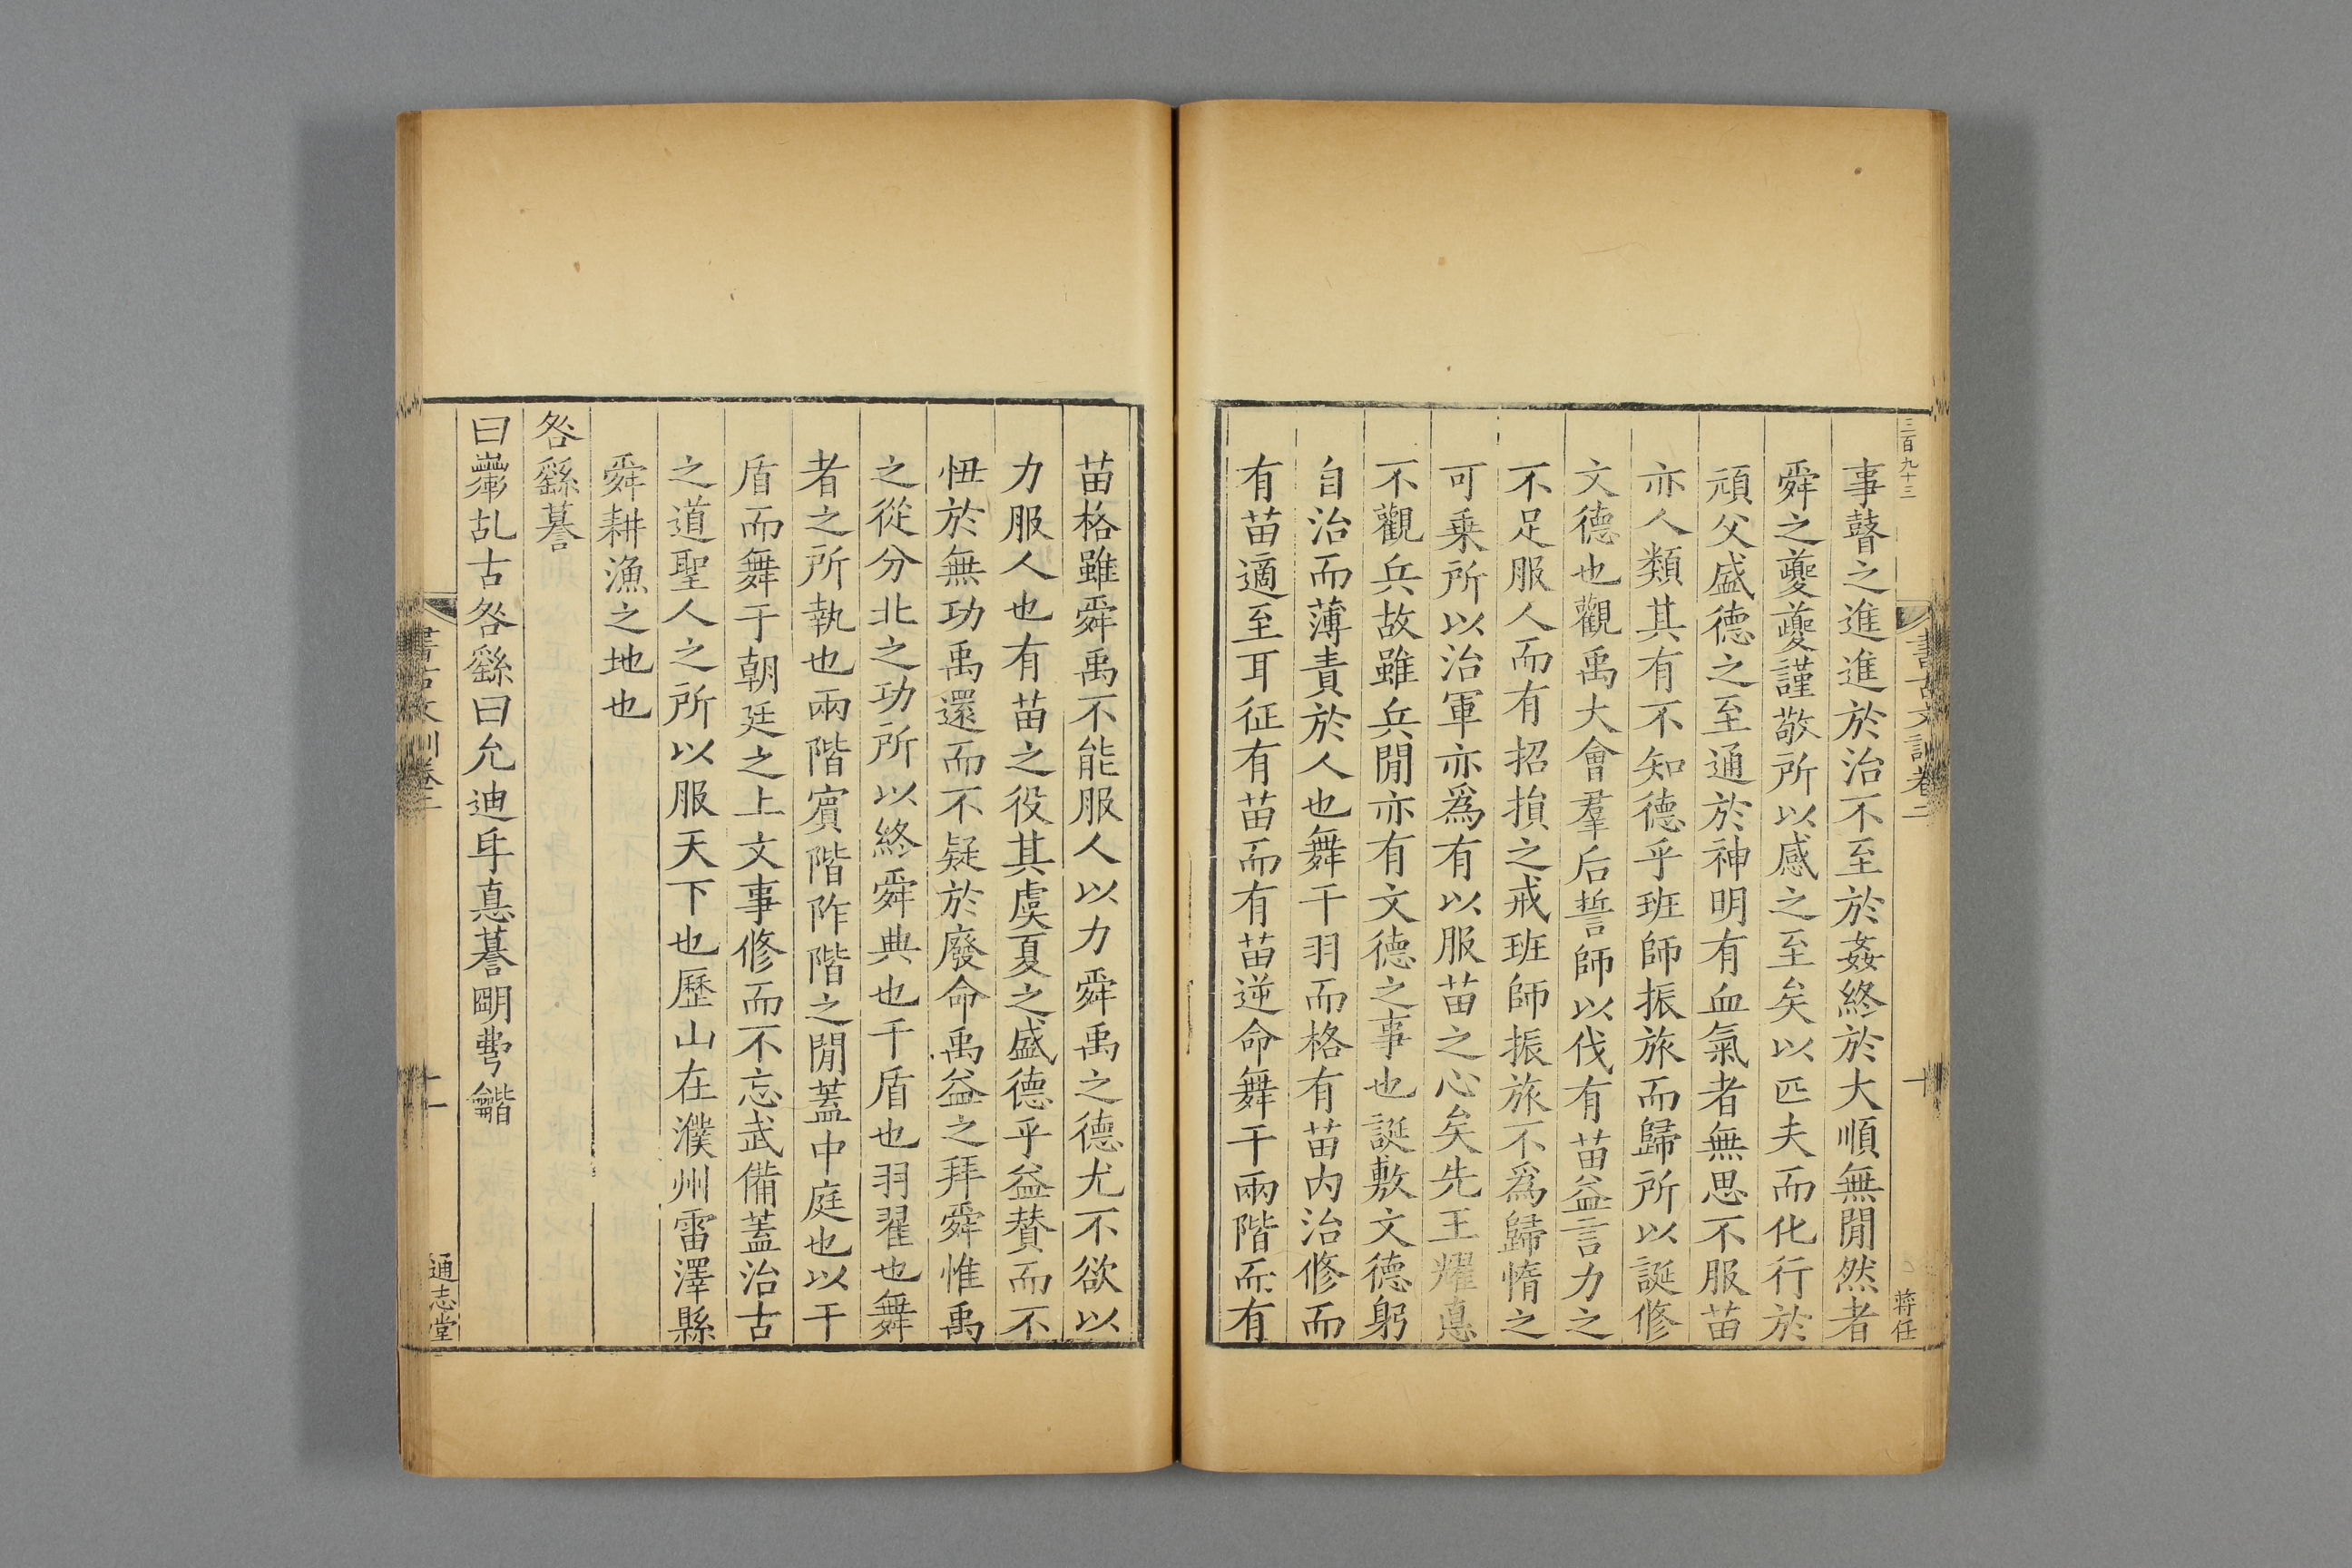 三百九十三
書古文訓卷二
十
蒋任
事瞽之進進於治不至於姦終於大順無閒然者
舜之夔夔謹敬所以感之至矣以匹夫而化行於
頑父盛德之至通於神明有血氣者無思不服苗
亦人類其有不知德乎班師振旅而歸所以誕修
文德也觀禹大會羣后誓師以伐有苗益言力之
不足服人而有招損之戒班師振旅不爲歸惰之
可乗所以治軍亦爲有以服苗之心矣先王耀悳
不觀兵故雖兵閒亦有文德之事也誕敷文德躬
自治而薄責於人也舞干羽而格有苗内治修而
有苗適至耳征有苗而有苗逆命舞干兩階而有
苗格雖舜禹不能服人以力舜禹之德尤不欲以
力服人也有苗之役其虞夏之盛德乎益賛而不
忸於無功禹還而不疑於廢命禹益之拜舜惟禹
之從分北之功所以終舜典也干盾也羽翟也舞
者之所執也兩階賔階阼階之閒蓋中庭也以干
盾而舞于朝廷之上文事修而不忘武備蓋治古
之道聖人之所以服天下也歷山在濮州雷澤縣
舜耕漁之地也
咎繇謩
曰乩古咎繇曰允迪𠂹悳謩朙弼龤
書古文訓卷二
十一
通志堂